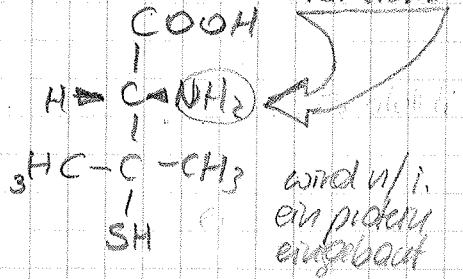 COOH
H C NH2
3HC-C-CH3
SH
wird n/i.
ein protein
eingebaut